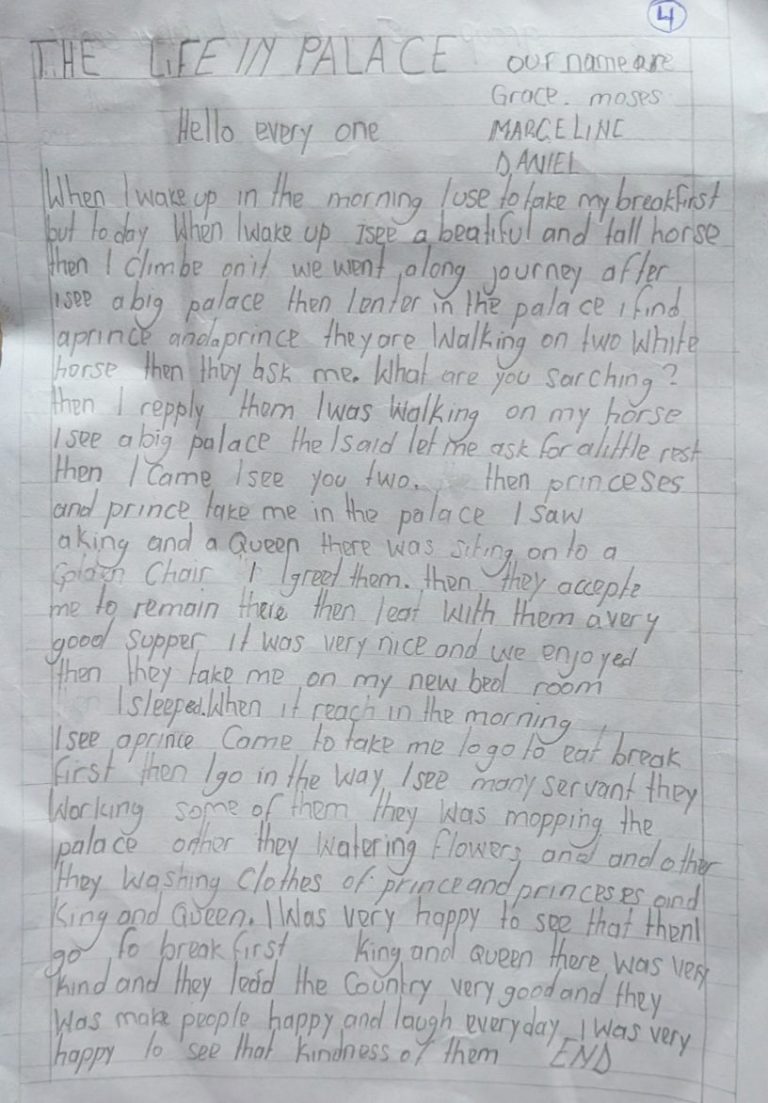 4
THE LIFE IN PALACE our name are
Grace. moses
Hello every one MARCELINE
DANIEL
When I wake up in the morning I use to take my breakfirst
but today When I wake up I see a beatiful and tall horse
then I climbe on it we went along journey after
I see a big palace then I enter in the palace i find
aprince andaprince they are Walking on two White
horse then they ask me. What are you sarching?
then I repply them I was Walking on my horse
I see a big palace the I said let me ask for alittle rest
then I came I see you two. then princeses
and prince take me in the palace I saw
aking and a Queen there was siting on to a
Golden Chair I greet them. then they accepte
me to remain there then I eat With them avery
good supper it was very nice and we enjoyed
then they take me on my new bed room
I sleeped. When it reach in the morning
I see aprince Come to take me to go to eat break
first then I go in the way I see many servant they
Working some of them they Was mopping the
palace other they Watering flowers and and other
they Washing Clothes of prince and princeses and
King and Queen. I Was very happy to see that then I
go to breakfirst King and Queen there was very
kind and they ledd the Country very good and they
Was make people happy and laugh everyday I Was very
happy to see that kindness of them END